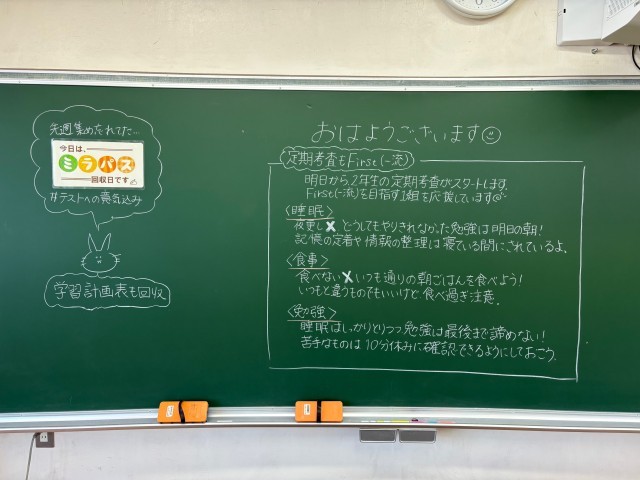 先週集めわすれてた…
今日は、
ミラパス
回収日です
#テストへの意気込み
学習計画表も回収
おはようございます
定期考査もFirst(一流)
明日から2年生の定期考査がスタートします。
First(一流)を目指す1組を応援しています
〈睡眠〉
夜更し✖どうしてもやりきれなかった勉強は明日の朝!
記憶の定着や情報の整理は寝ている間にされているよ。
〈食事〉
食べない✖いつも通りの朝ごはんを食べよう!
いつもと違うものでもいいけど食べ過ぎ注意。
〈勉強〉
睡眠はしっかりとりつつ勉強は最後まで諦めない!
苦手なものは10分休みに確認できるようにしておこう。